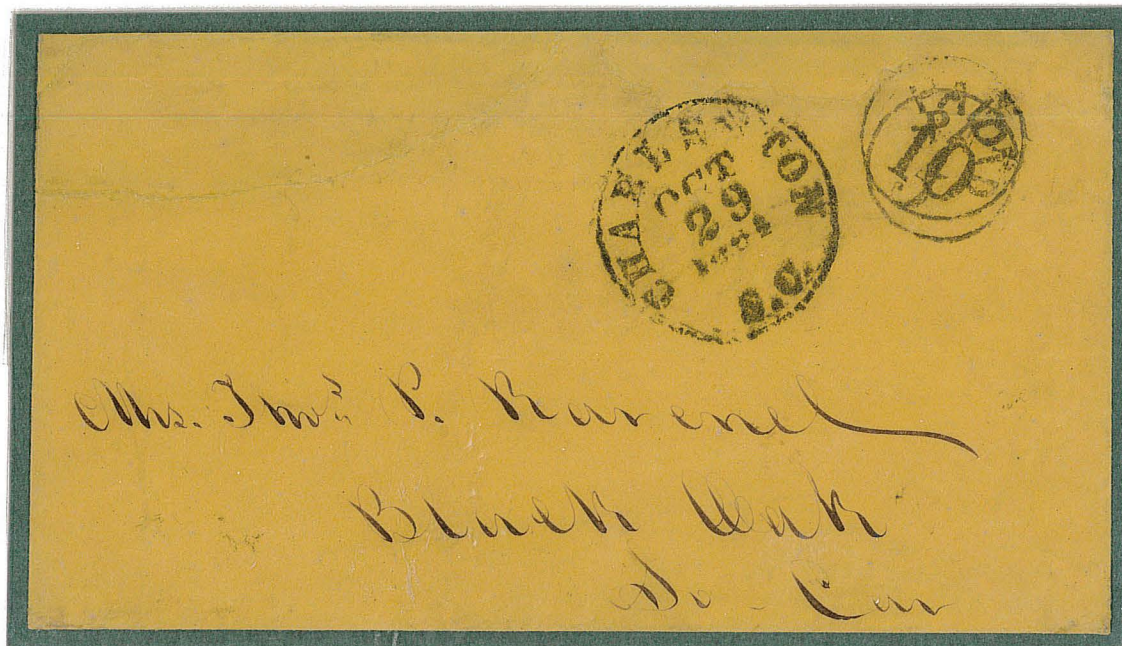 CHARLESTON
OCT
29
S.C.
PAID
10
Mrs. Thos. P. Ravenel
Black Oak
So. Car